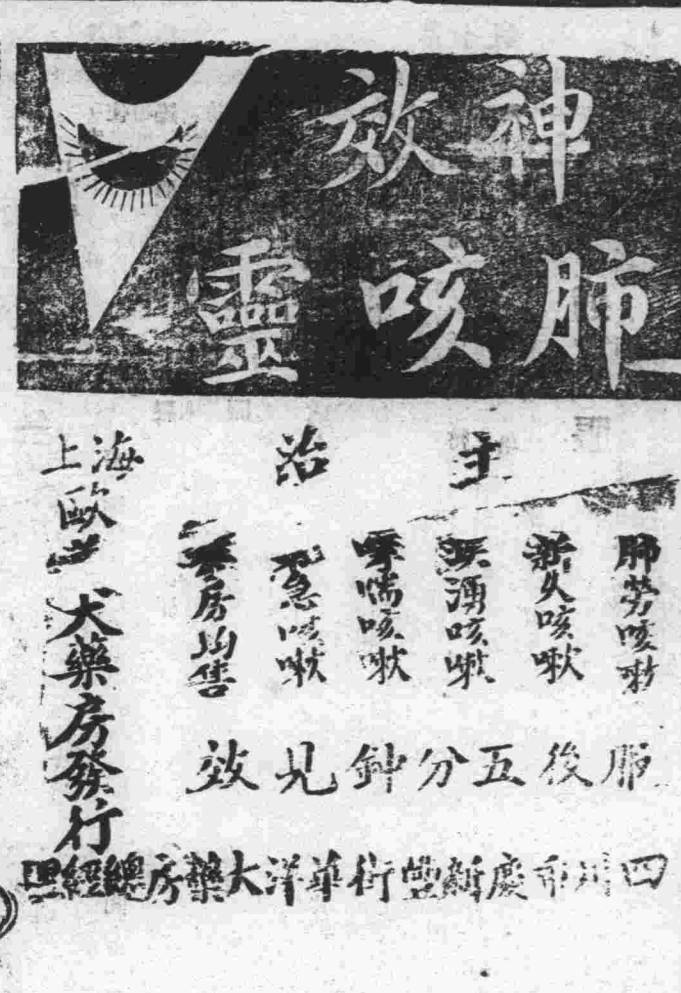 神效
肺咳靈
主治
肺勞咳嗽
新久咳嗽
痰湧咳嗽
哮喘咳嗽
急咳嗽
房均售
服後五分鈡見效
上海歐
大藥房發行
四川慶新豐街華洋大藥房總經理